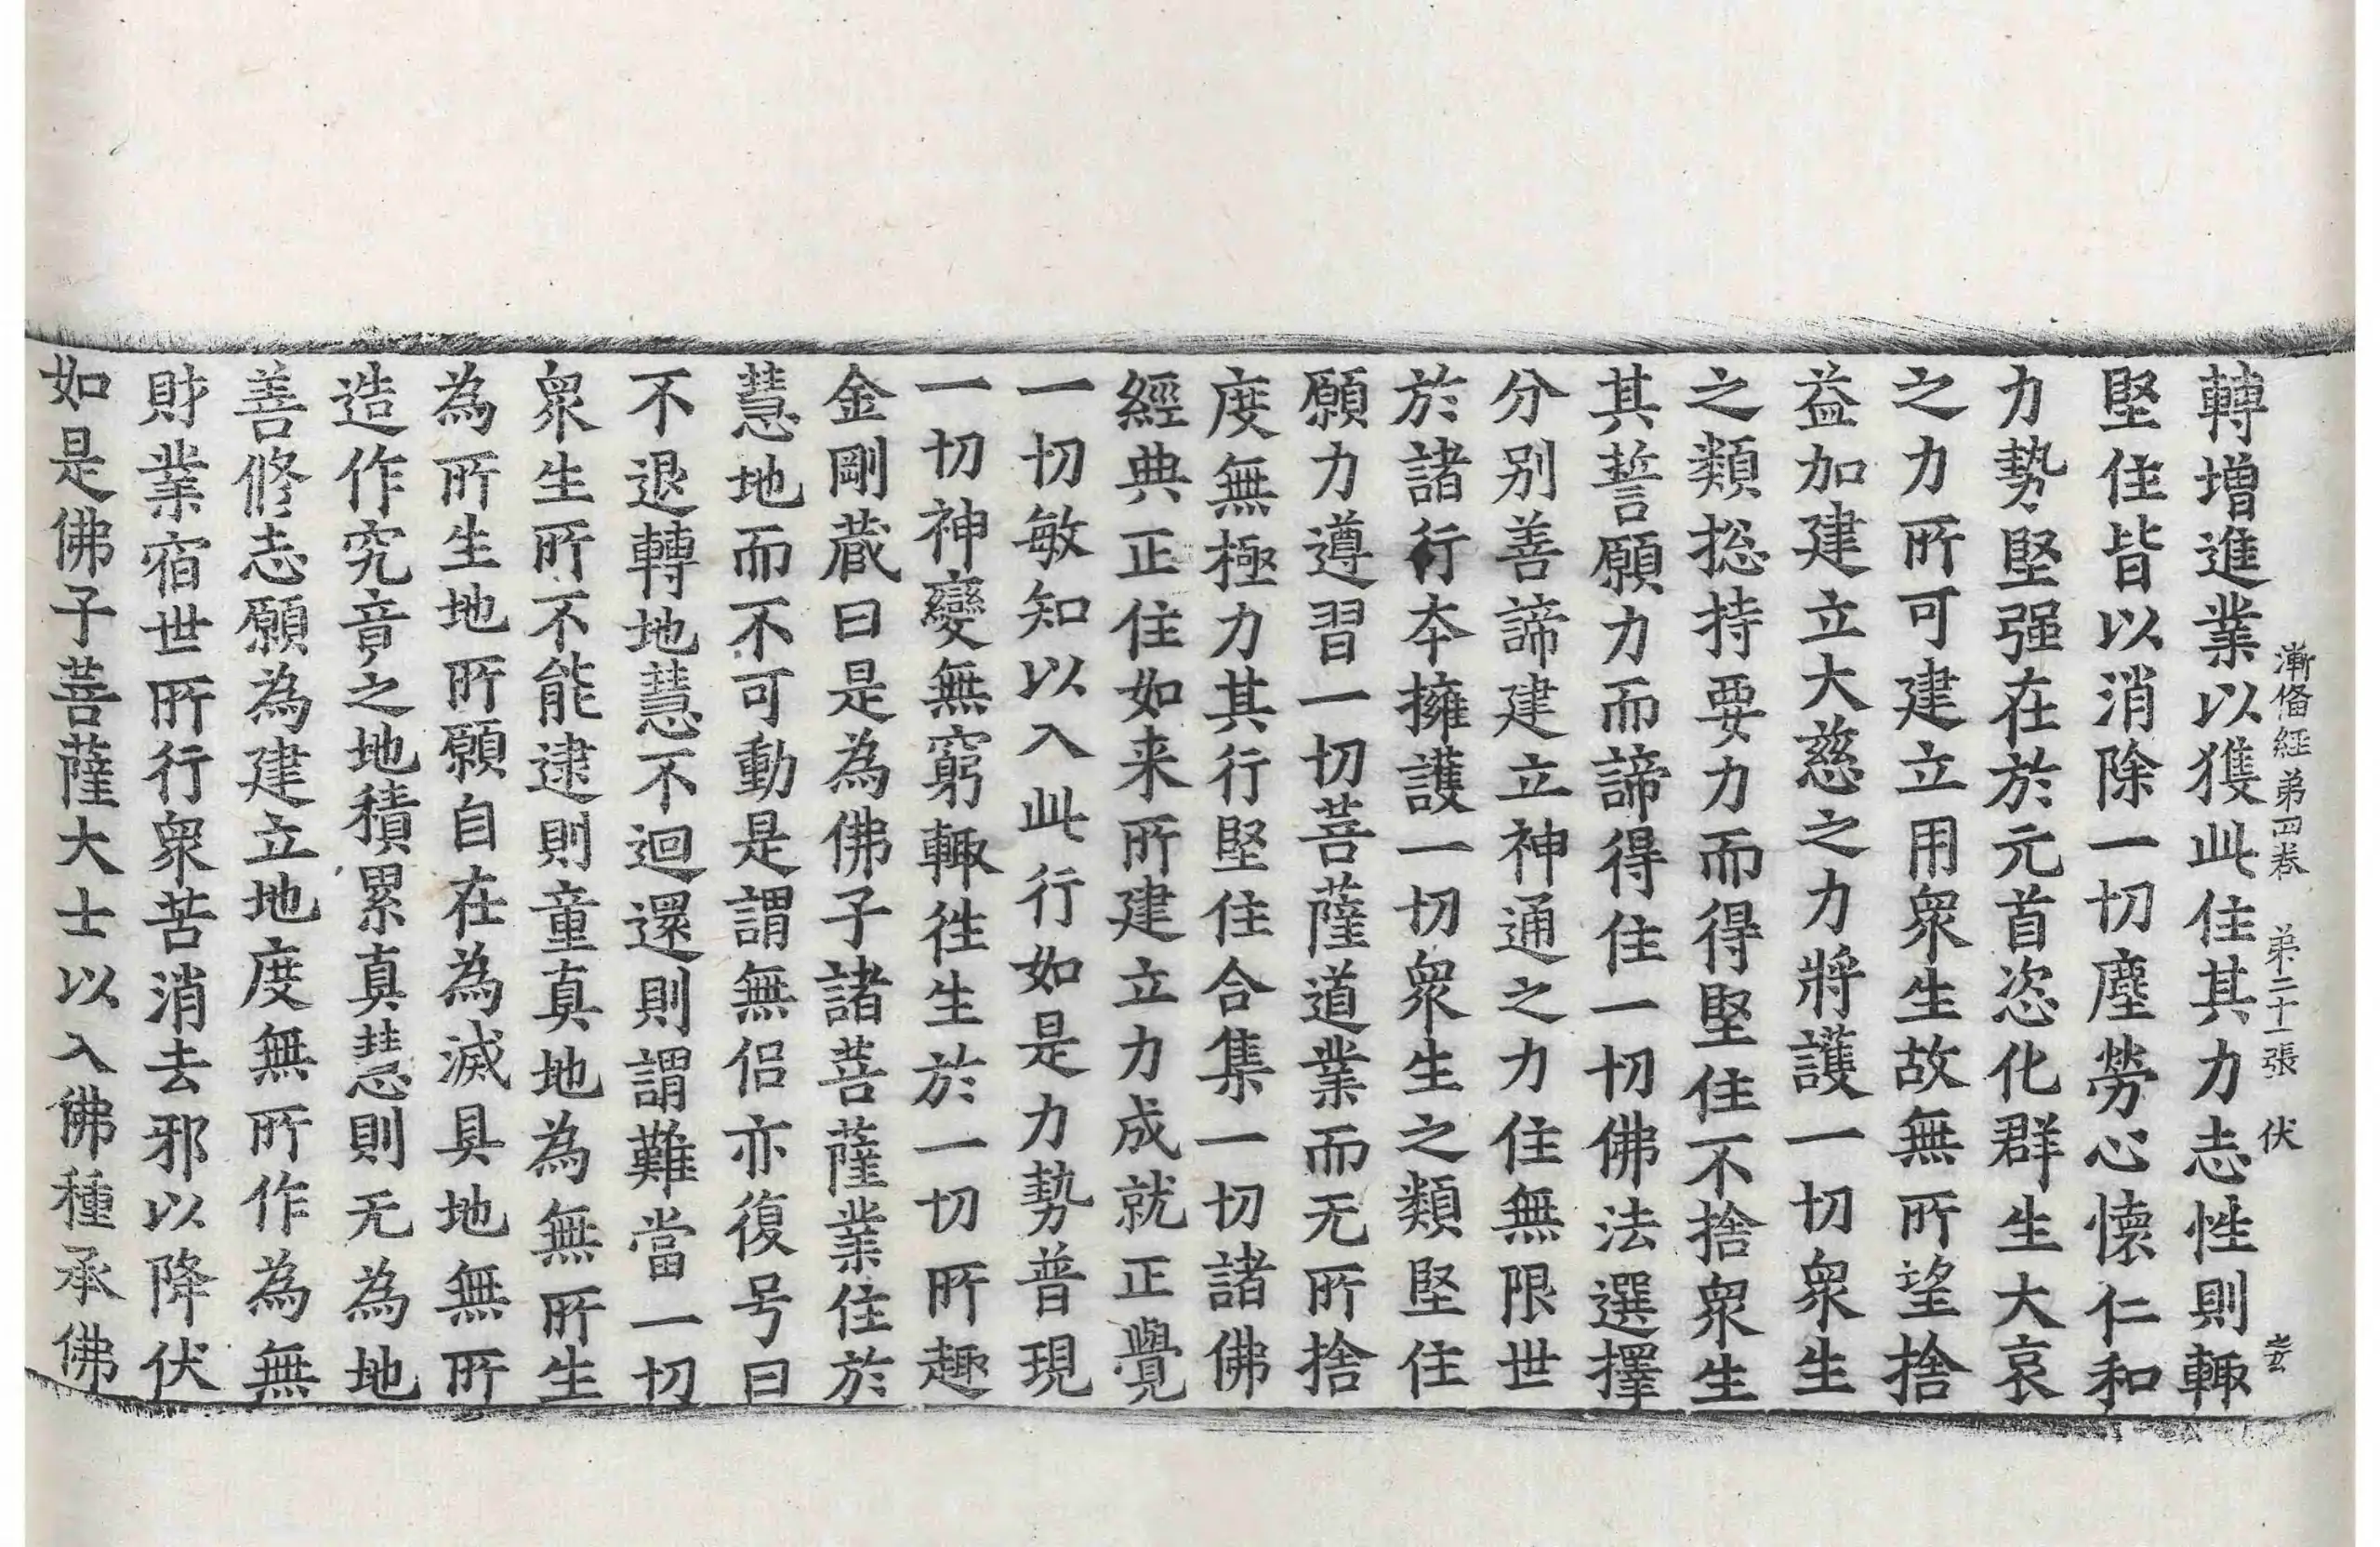 漸俻經弟四卷　弟二十一張　伏
轉增進業以獲此住其力志性則輙
堅住皆以消除一切塵勞心懷仁和
力勢堅强在於元首恣化群生大哀
之力所可建立用衆生故無所望捨
益加建立大慈之力將護一切衆生
之類捴持要力而得堅住不捨衆生
其誓願力而諦得住一切佛法選擇
分别善諦建立神通之力住無限世
於諸行夲擁護一切衆生之類堅住
願力遵習一切菩薩道業而无所捨
度無極力其行堅住合集一切諸佛
經典正住如来所建立力成就正覺
一切敏知以入此行如是力勢普現
一切神變無窮輙徃生於一切所趣
金剛蔵曰是為佛子諸菩薩業住於
慧地而不可動是謂無侣亦復号曰
不退轉地慧不迴還則謂難當一切
衆生所不能逮則童真地為無所生
為所生地所願自在為滅具地無所
造作究竟之地積累真慧則无為地
善修志願為建立地度無所作為無
財業宿世所行衆苦消去邪以降伏
如是佛子菩薩大士以入佛種承佛